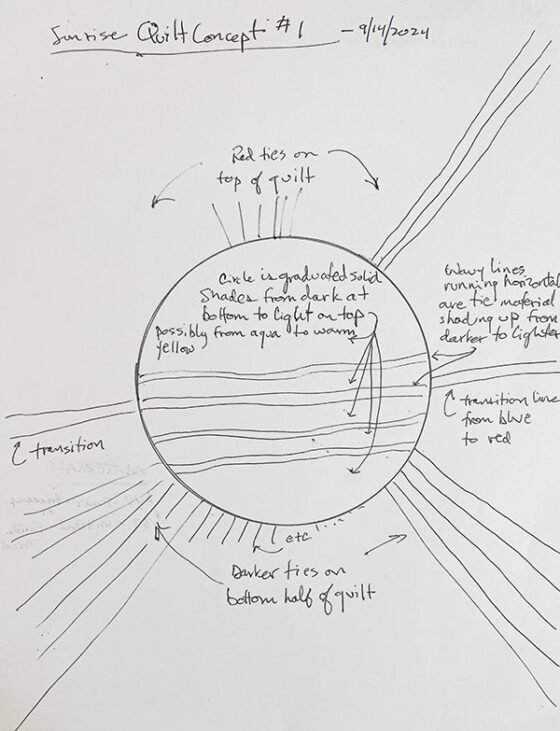 Sunrise Quilt Concept #1 - 9/14/2024
Red ties on
top of quilt
Circle is graduated solid
Shades from dark at
bottom to light on top
possibly from aqua to warm
yellow
Wavy lines
running horizontal
are tie material
shading up from
darker to lighter
transition line
from blue
to red
transition
etc
Darker ties on
bottom half of quilt